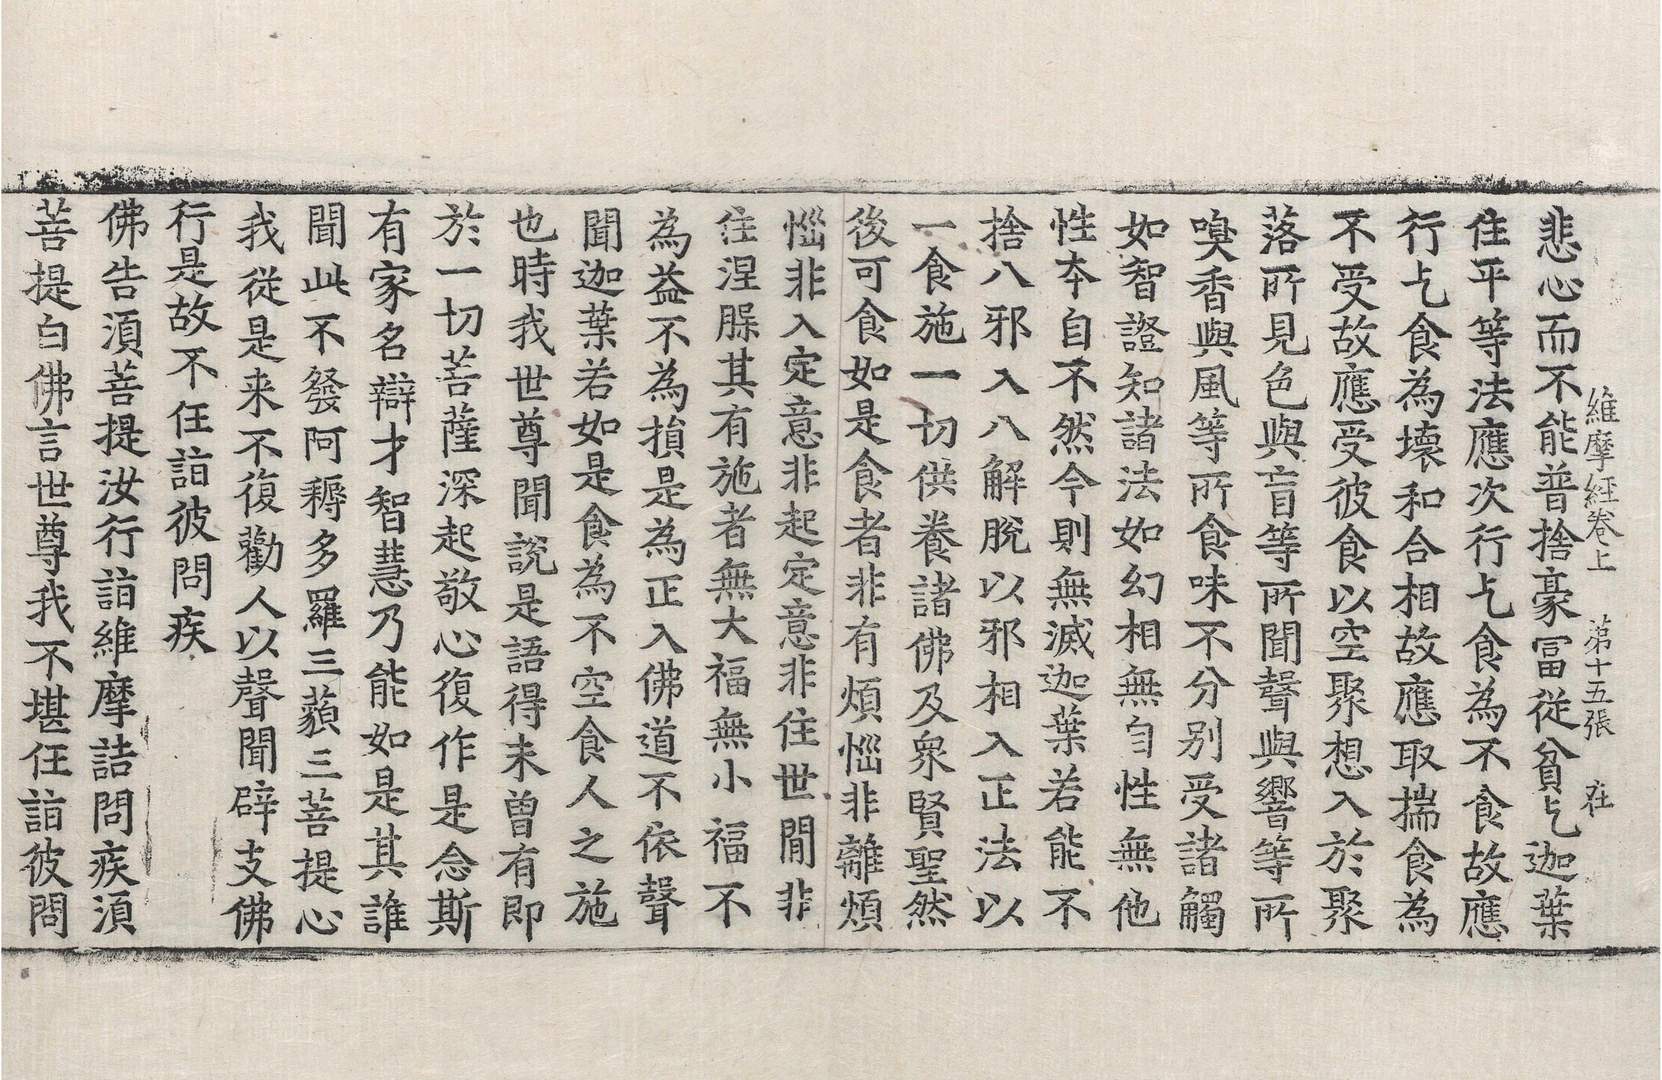 維摩經卷上 第十五張 在
悲心而不能普捨豪冨從貧乞迦葉
住平等法應次行乞食為不食故應
行乞食為壊和合相故應取揣食為
不受故應受彼食以空聚想入於聚
落所見色與盲等所聞聲與響等所
嗅香與風等所食味不分别受諸觸
如智證知諸法如幻相無自性無他
性夲自不然今則無滅迦葉若能不
捨八邪入八解脫以邪相入正法以
一食施一切供養諸佛及衆賢聖然
後可食如是食者非有煩惱非離煩
惱非入定意非起定意非住世間非
住涅槃其有施者無大福無小福不
為益不為損是為正入佛道不依聲
聞迦葉若如是食為不空食人之施
也時我世尊聞說是語得未曽有即
於一切菩薩深起敬心復作是念斯
有家名辯才智慧乃能如是其誰
聞此不發阿耨多羅三藐三菩提心
我從是来不復勸人以聲聞辟支佛
行是故不任詣彼問疾
佛告湏菩提汝行詣維摩詰問疾湏
菩提白佛言世尊我不堪任詣彼問